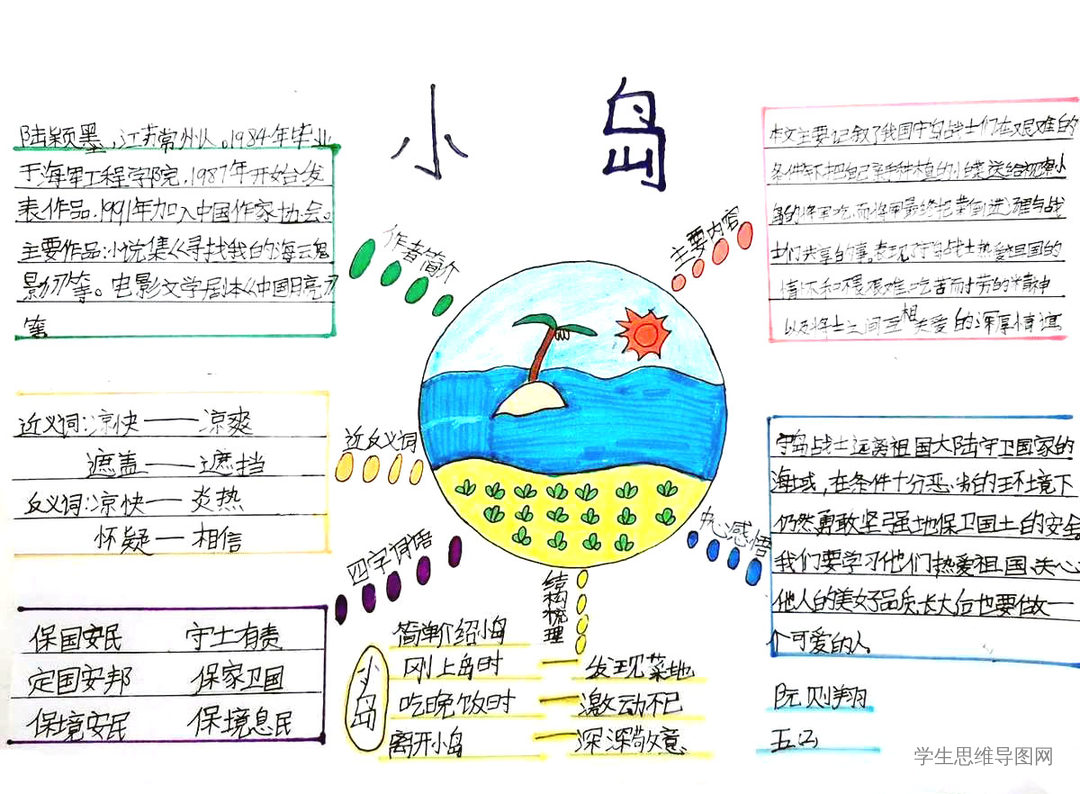 小岛
陆颖墨，江苏常州人。1984年毕业
于海军工程学院，1987年开始发
表作品，1991年加入中国作家协会。
主要作品:小说集《寻找我的海云鬼
影刀》等。电影文学剧体《中国月亮刀
等
作者简介
主要内容
本文主要记叙了我国守岛战士们在艰难的
条件下把自己亲种植的小菜送给视察小
岛的将军吃，而将军最终把菜倒进汤里与战
士们共享的事。表现了守岛战士热爱祖国的
情怀和不畏艰难，吃苦而十劳的精神
以及将士之间互相关爱的深厚情谊
近反义词
近义词:凉快——凉爽
遮盖——遮挡
反义词:凉快——炎热
怀疑—相信
四字词语
保国安民 守土有责
定国安邦 保家卫国
保境安民 保境息民
结构梳理
小岛
简单介绍小岛
刚上岛时—发现菜地
吃晚饭时—激动不已
离开小岛—深深敬意
中心感悟
守岛战士远离祖国大陆守卫国家的
海域，在条件十分恶劣的环境下
仍然勇敢坚强地保卫国土的安全
我们要学习他们热爱祖国、关心
他人的美好品质，长大后也要做一
个可爱的人
阮则翔
五(2)
学生思维导图网